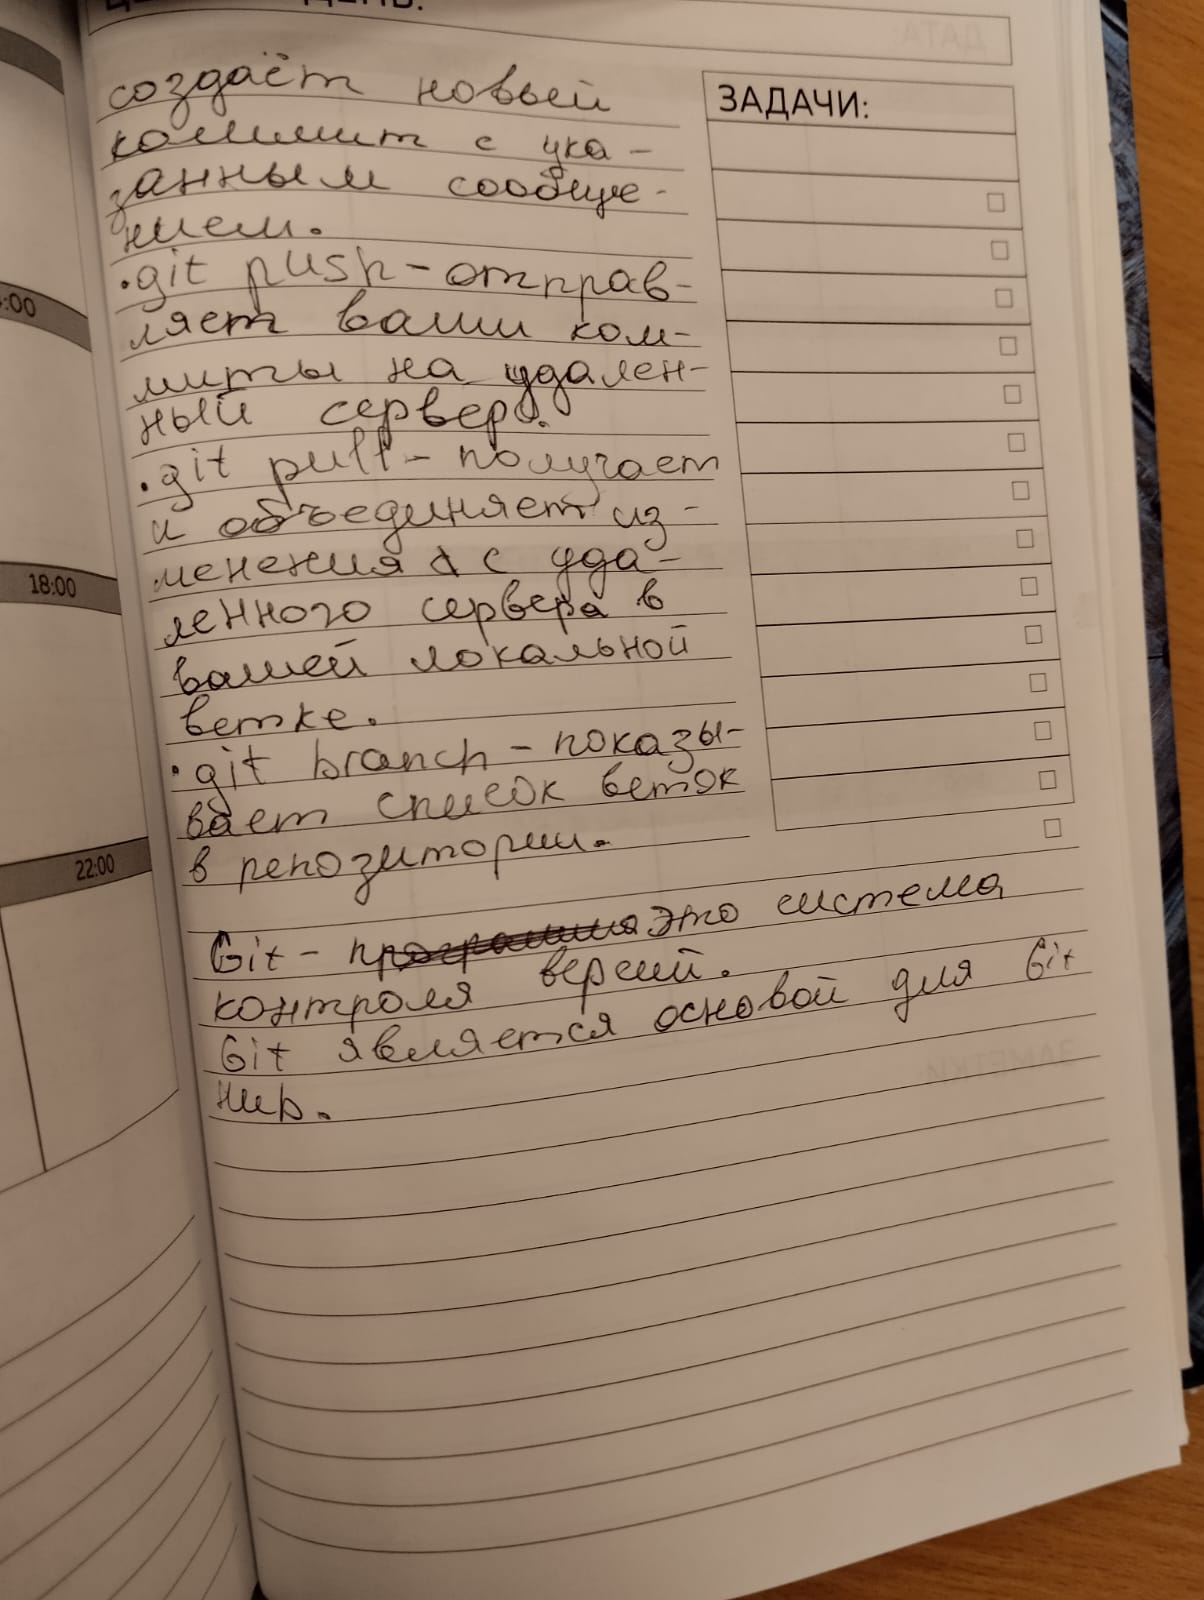 создаёт новый
коммит с ука-
занным сообще-
нием.
• git push - отправ-
ляет ваши ком-
миты на удален-
ный сервер.
• git pull - получает
и объединяет из-
менения с уда-
ленного сервера в
вашей локальной
ветке.
• git branch - показы-
вает список веток
в репозитории.
Git - это система
контроля версий.
Git является основой для Git
ЗАДАЧИ:
:00
18:00
22:00